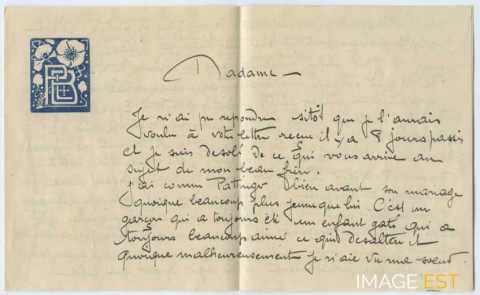 Madame
Je n'ai pu repondre sitôt que je l'aurais
voulu à votre lettre recue il y a 8 jours passés
et je suis desolé de ce qui vous arrive au
sujet de mon beau frère.
J'ai connu bien avant son mariage
quoique beaucoup plus jeune que lui C'est un
garçon qui a toujours été un enfant gaté qui a
toujours beaucoup aimé ce qui
quoique malheureusement je n'aie vu ma soeur
IMAGE'EST